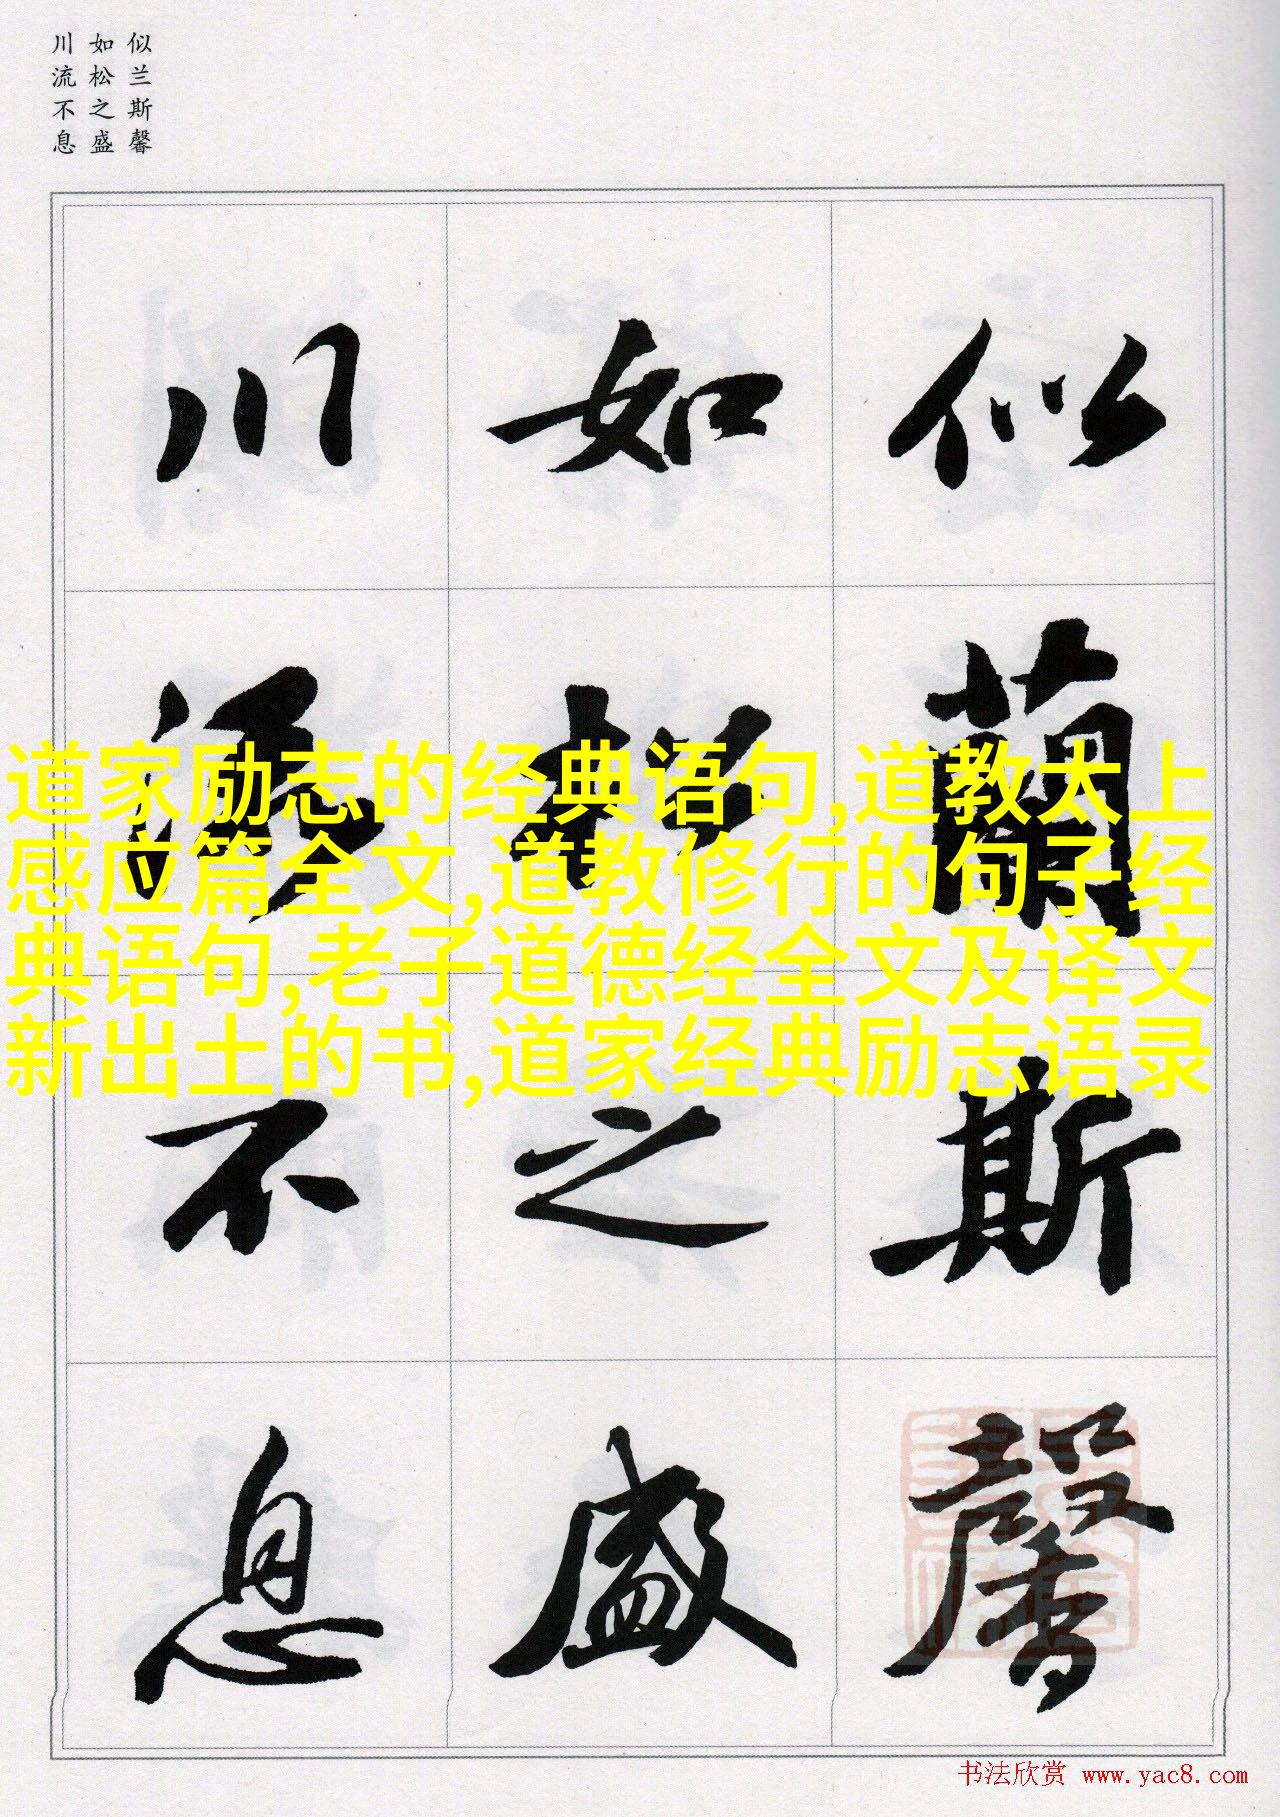 似兰斯馨
如松之盛
川流不息
似蘭斯馨
如松之盛
川流不息
道家励志的经典语句,道教太上
感应篇全文,道教修行的句子经
典语句,老子道德经全文及译文
新出土的书,道家经典励志语录
书法欣赏 www.yac8.com